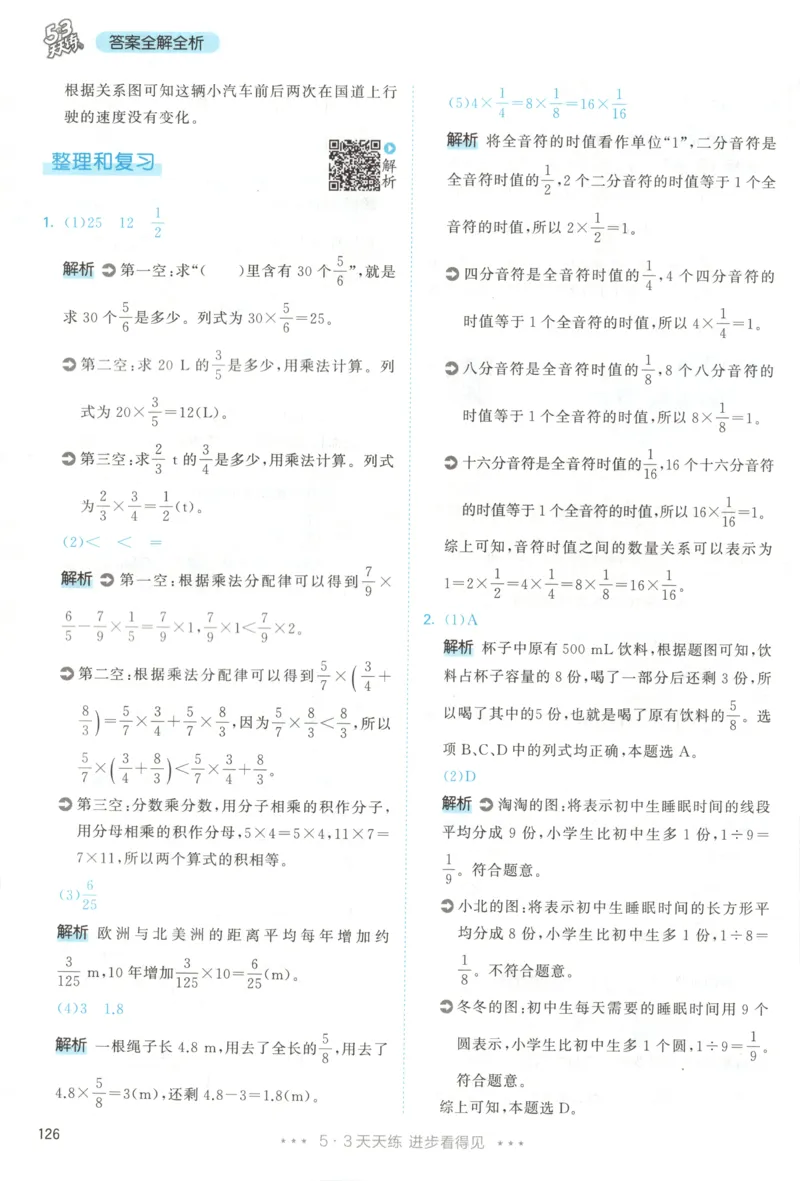 5·3
天天练
答案全解全析
根据关系图可知这辆小汽车前后两次在国道上行
驶的速度没有变化。
整理和复习
解
析
1. (1)25 12 1/2
解析 第一空:求“( )里含有 30 个5/6”,就是
求 30 个5/6是多少。列式为 30×5/6=25。
第二空:求 20 L 的3/5是多少,用乘法计算。列
式为 20×3/5=12(L)。
第三空:求2/3 t 的3/4是多少,用乘法计算。列式
为2/3×3/4=1/2(t)。
(2)< < =
解析 第一空:根据乘法分配律可以得到7/9×
6/5-7/9×1/5=7/9×1,7/9×1<7/9×2。
第二空:根据乘法分配律可以得到5/7×(3/4+
8/3)=5/7×3/4+5/7×8/3,因为5/7×8/3<8/3,所以
5/7×(3/4+8/3)<5/7×3/4+8/3。
第三空:分数乘分数,用分子相乘的积作分子,
用分母相乘的积作分母,5×4=5×4,11×7=
7×11,所以两个算式的积相等。
(3)6/25
解析 欧洲与北美洲的距离平均每年增加约
3/125 m,10 年增加3/125×10=6/25(m)。
(4)3 1.8
解析 一根绳子长 4.8 m,用去了全长的5/8,用去了
4.8×5/8=3(m),还剩 4.8-3=1.8(m)。
(5)4×1/4=8×1/8=16×1/16
解析 将全音符的时值看作单位“1”,二分音符是
全音符时值的1/2,2 个二分音符的时值等于 1 个全
音符的时值,所以 2×1/2=1。
四分音符是全音符时值的1/4,4 个四分音符的
时值等于 1 个全音符的时值,所以 4×1/4=1。
八分音符是全音符时值的1/8,8 个八分音符的
时值等于 1 个全音符的时值,所以 8×1/8=1。
十六分音符是全音符时值的1/16,16 个十六分音符
的时值等于 1 个全音符的时值,所以 16×1/16=1。
综上可知,音符时值之间的数量关系可以表示为
1=2×1/2=4×1/4=8×1/8=16×1/16。
2. (1)A
解析 杯子中原有 500 mL 饮料,根据题图可知,饮
料占杯子容量的 8 份,喝了一部分后还剩 3 份,所
以喝了其中的5 份,也就是喝了原有饮料的5/8。选
项 B、C、D 中的列式均正确,本题选 A。
(2)D
解析 淘淘的图:将表示初中生睡眠时间的线段
平均分成 9 份,小学生比初中生多 1 份,1÷9=
1/9。符合题意。
小北的图:将表示初中生睡眠时间的长方形平
均分成 8 份,小学生比初中生多 1 份,1÷8=
1/8。不符合题意。
冬冬的图:初中生每天需要的睡眠时间用 9 个
圆表示,小学生比初中生多 1 个圆,1÷9=1/9。
符合题意。
综上可知,本题选 D。
126
5·3天天练 进步看得见